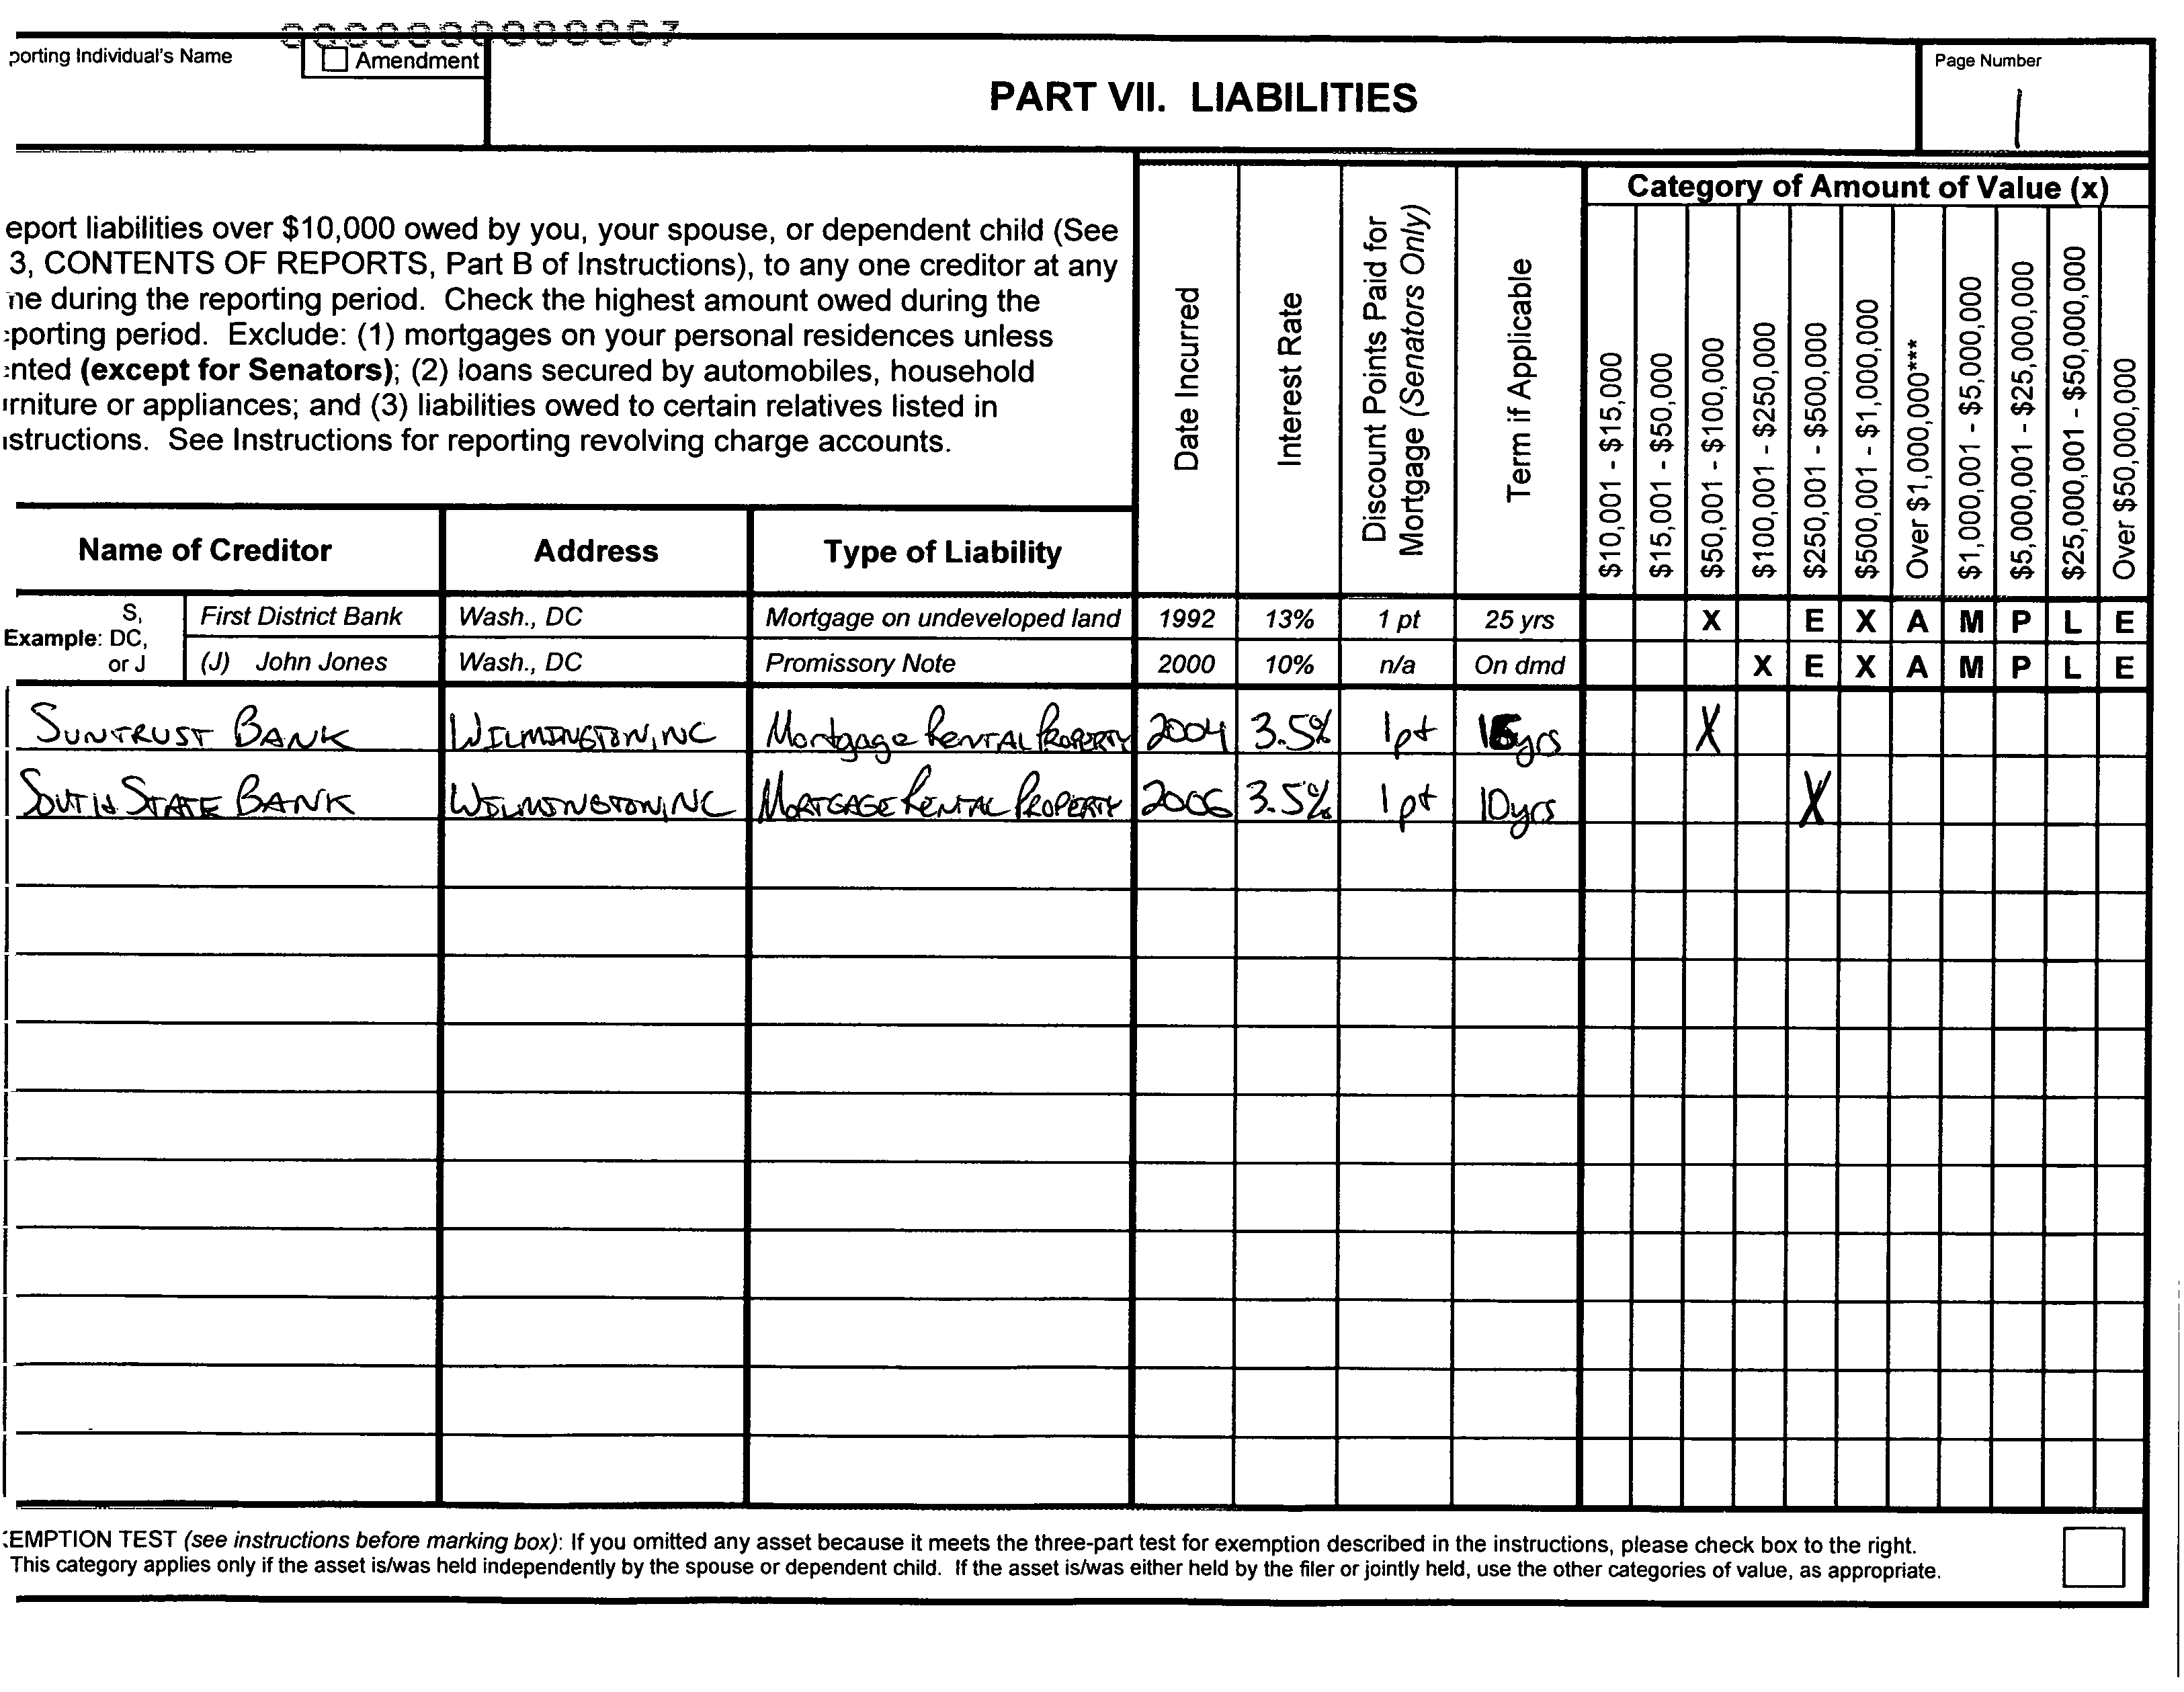 0000000000067
porting Individual's Name
Amendment
PART VII. LIABILITIES
Page Number
1
eport liabilities over $10,000 owed by you, your spouse, or dependent child (See
3, CONTENTS OF REPORTS, Part B of Instructions), to any one creditor at any
ne during the reporting period. Check the highest amount owed during the
porting period. Exclude: (1) mortgages on your personal residences unless
nted (except for Senators); (2) loans secured by automobiles, household
rniture or appliances; and (3) liabilities owed to certain relatives listed in
structions. See Instructions for reporting revolving charge accounts.
Date Incurred
Interest Rate
Discount Points Paid for
Mortgage (Senators Only)
Term if Applicable
Category of Amount of Value (x)
$10,001 - $15,000
$15,001 - $50,000
$50,001 - $100,000
$100,001 - $250,000
$250,001 - $500,000
$500,001 - $1,000,000
Over $1,000,000***
$1,000,001 - $5,000,000
$5,000,001 - $25,000,000
$25,000,001 - $50,000,000
Over $50,000,000
Name of Creditor Address Type of Liability
Example: S, DC, or J
First District Bank Wash., DC Mortgage on undeveloped land 1992 13% 1 pt 25 yrs X E X A M P L E
(J) John Jones Wash., DC Promissory Note 2000 10% n/a On dmd X E X A M P L E
SUNTRUST BANK WILMINGTON, NC Mortgage RENTAL PROPERTY 2004 3.5% 1pt 15yrs X
SOUTH STATE BANK WILMINGTON, NC MORTGAGE RENTAL PROPERTY 2006 3.5% 1pt 10yrs X
EMPTION TEST (see instructions before marking box): If you omitted any asset because it meets the three-part test for exemption described in the instructions, please check box to the right.
This category applies only if the asset is/was held independently by the spouse or dependent child. If the asset is/was either held by the filer or jointly held, use the other categories of value, as appropriate.